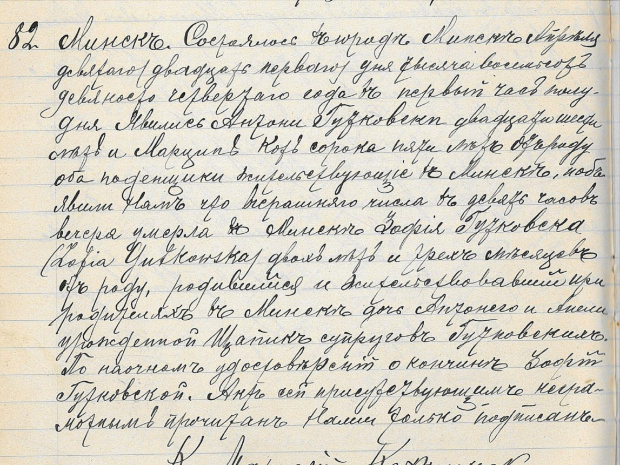 82 Минскъ. Состоялось въ городѣ Минскѣ Апрѣля
девятаго/двадцать перваго/ дня тысяча восемьсотъ
девяносто четвертаго года въ первый часъ полу-
дня. Явились Антони Гутковски двадцати шести
лѣтъ и Марцинъ Козъ сорока пяти лѣтъ отъ роду
оба поденщики жительствующіе въ Минскѣ, и объ
явили намъ что вчерашняго числа въ девять часовъ
вечера умерла въ Минскѣ Зофія Гутковска
/Zofia Gutkowska/ двохъ лѣтъ и трехъ мѣсяцовъ
отъ роду, родившійся и жительствовавшій при
родителяхъ въ Минскѣ дочь Антонего и Анели
урожденной Щапикъ супруговъ Гутковскихъ.
По наочномъ удостовѣреніи о кончинѣ Зофіи
Гутковской. Актъ сей присутствующимъ негра-
мотнымъ прочитанъ Нами только подписанъ.